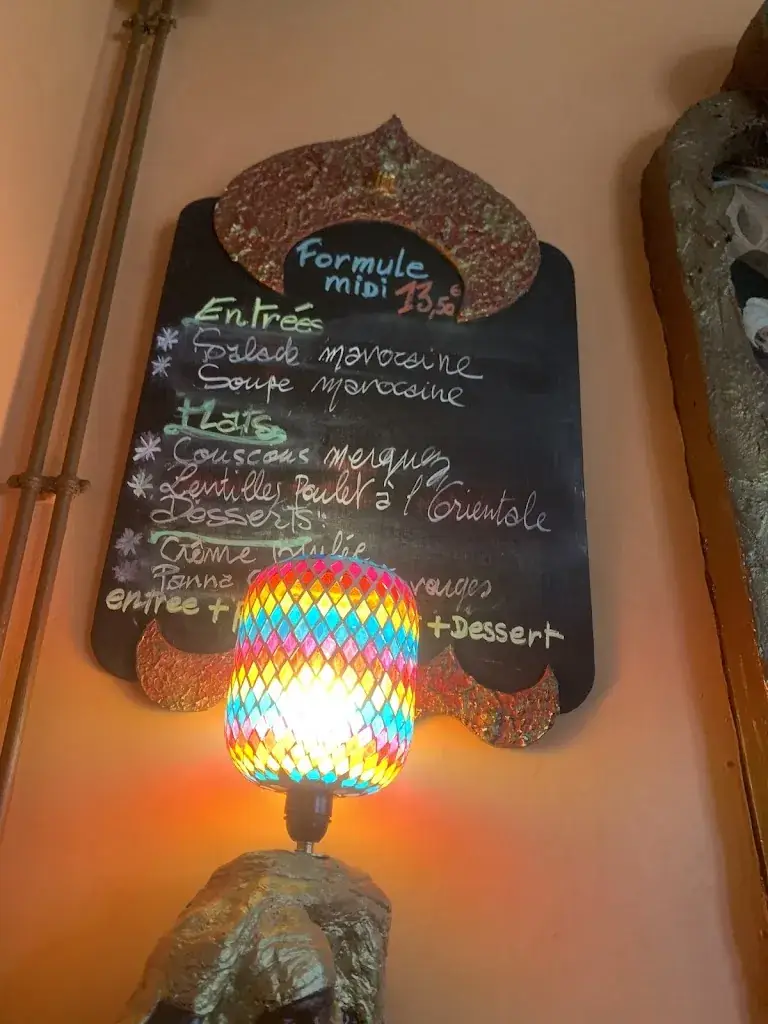 Formule
midi 13,50€
Entrées
* Salade marocaine
* Soupe marocaine
Plats
* Couscous merguez
* Lentilles Poulet à l'Orientale
Desserts:
* Crème brulée
* Panna rouges
entrée + + Dessert